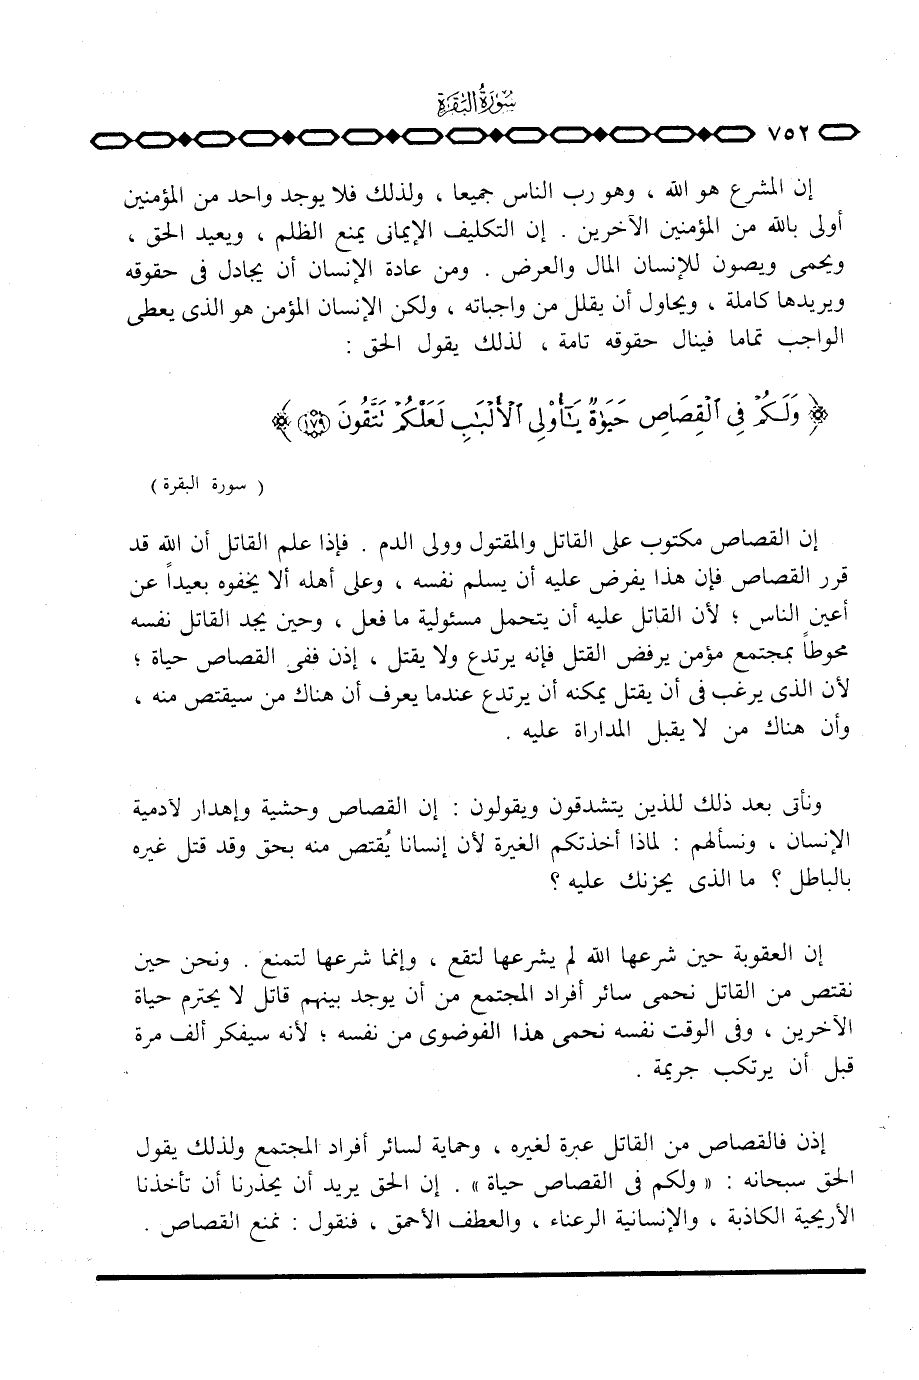 سُورَةُ البَقَرَةِ
٧٥٢
إن المشرع هو الله ، وهو رب الناس جميعا ، ولذلك فلا يوجد واحد من المؤمنين
أولى بالله من المؤمنين الآخرين . إن التكليف الإيمانى يمنع الظلم ، ويعيد الحق ،
ويحمى ويصون للإنسان المال والعرض . ومن عادة الإنسان أن يجادل فى حقوقه
ويريدها كاملة ، ويحاول أن يقلل من واجباته ، ولكن الإنسان المؤمن هو الذى يعطى
الواجب تماما فينال حقوقه تامة ، لذلك يقول الحق :
﴿ وَلَكُمْ فِى ٱلْقِصَاصِ حَيَوٰةٌ يَـٰٓأُوْلِى ٱلْأَلْبَـٰبِ لَعَلَّكُمْ تَتَّقُونَ ١٧٩ ﴾
( سورة البقرة )
إن القصاص مكتوب على القاتل والمقتول وولى الدم . فإذا علم القاتل أن الله قد
قرر القصاص فإن هذا يفرض عليه أن يسلم نفسه ، وعلى أهله ألا يخفوه بعيداً عن
أعين الناس ؛ لأن القاتل عليه أن يتحمل مسئولية ما فعل ، وحين يجد القاتل نفسه
محوطاً بمجتمع مؤمن يرفض القتل فإنه يرتدع ولا يقتل ، إذن ففى القصاص حياة ؛
لأن الذى يرغب فى أن يقتل يمكنه أن يرتدع عندما يعرف أن هناك من سيقتص منه ،
وأن هناك من لا يقبل المداراة عليه .
ونأتى بعد ذلك للذين يتشدقون ويقولون : إن القصاص وحشية وإهدار لآدمية
الإنسان ، ونسألهم : لماذا أخذتكم الغيرة لأن إنسانا يُقتص منه بحق وقد قتل غيره
بالباطل ؟ ما الذى يحزنك عليه ؟
إن العقوبة حين شرعها الله لم يشرعها لتقع ، وإنما شرعها لتمنع . ونحن حين
نقتص من القاتل نحمى سائر أفراد المجتمع من أن يوجد بينهم قاتل لا يحترم حياة
الآخرين ، وفى الوقت نفسه نحمى هذا الفوضوى من نفسه ؛ لأنه سيفكر ألف مرة
قبل أن يرتكب جريمة .
إذن فالقصاص من القاتل عبرة لغيره ، وحماية لسائر أفراد المجتمع ولذلك يقول
الحق سبحانه : « ولكم فى القصاص حياة » . إن الحق يريد أن يحذرنا أن تأخذنا
الأريحية الكاذبة ، والإنسانية الرعناء ، والعطف الأحمق ، فنقول : نمنع القصاص .